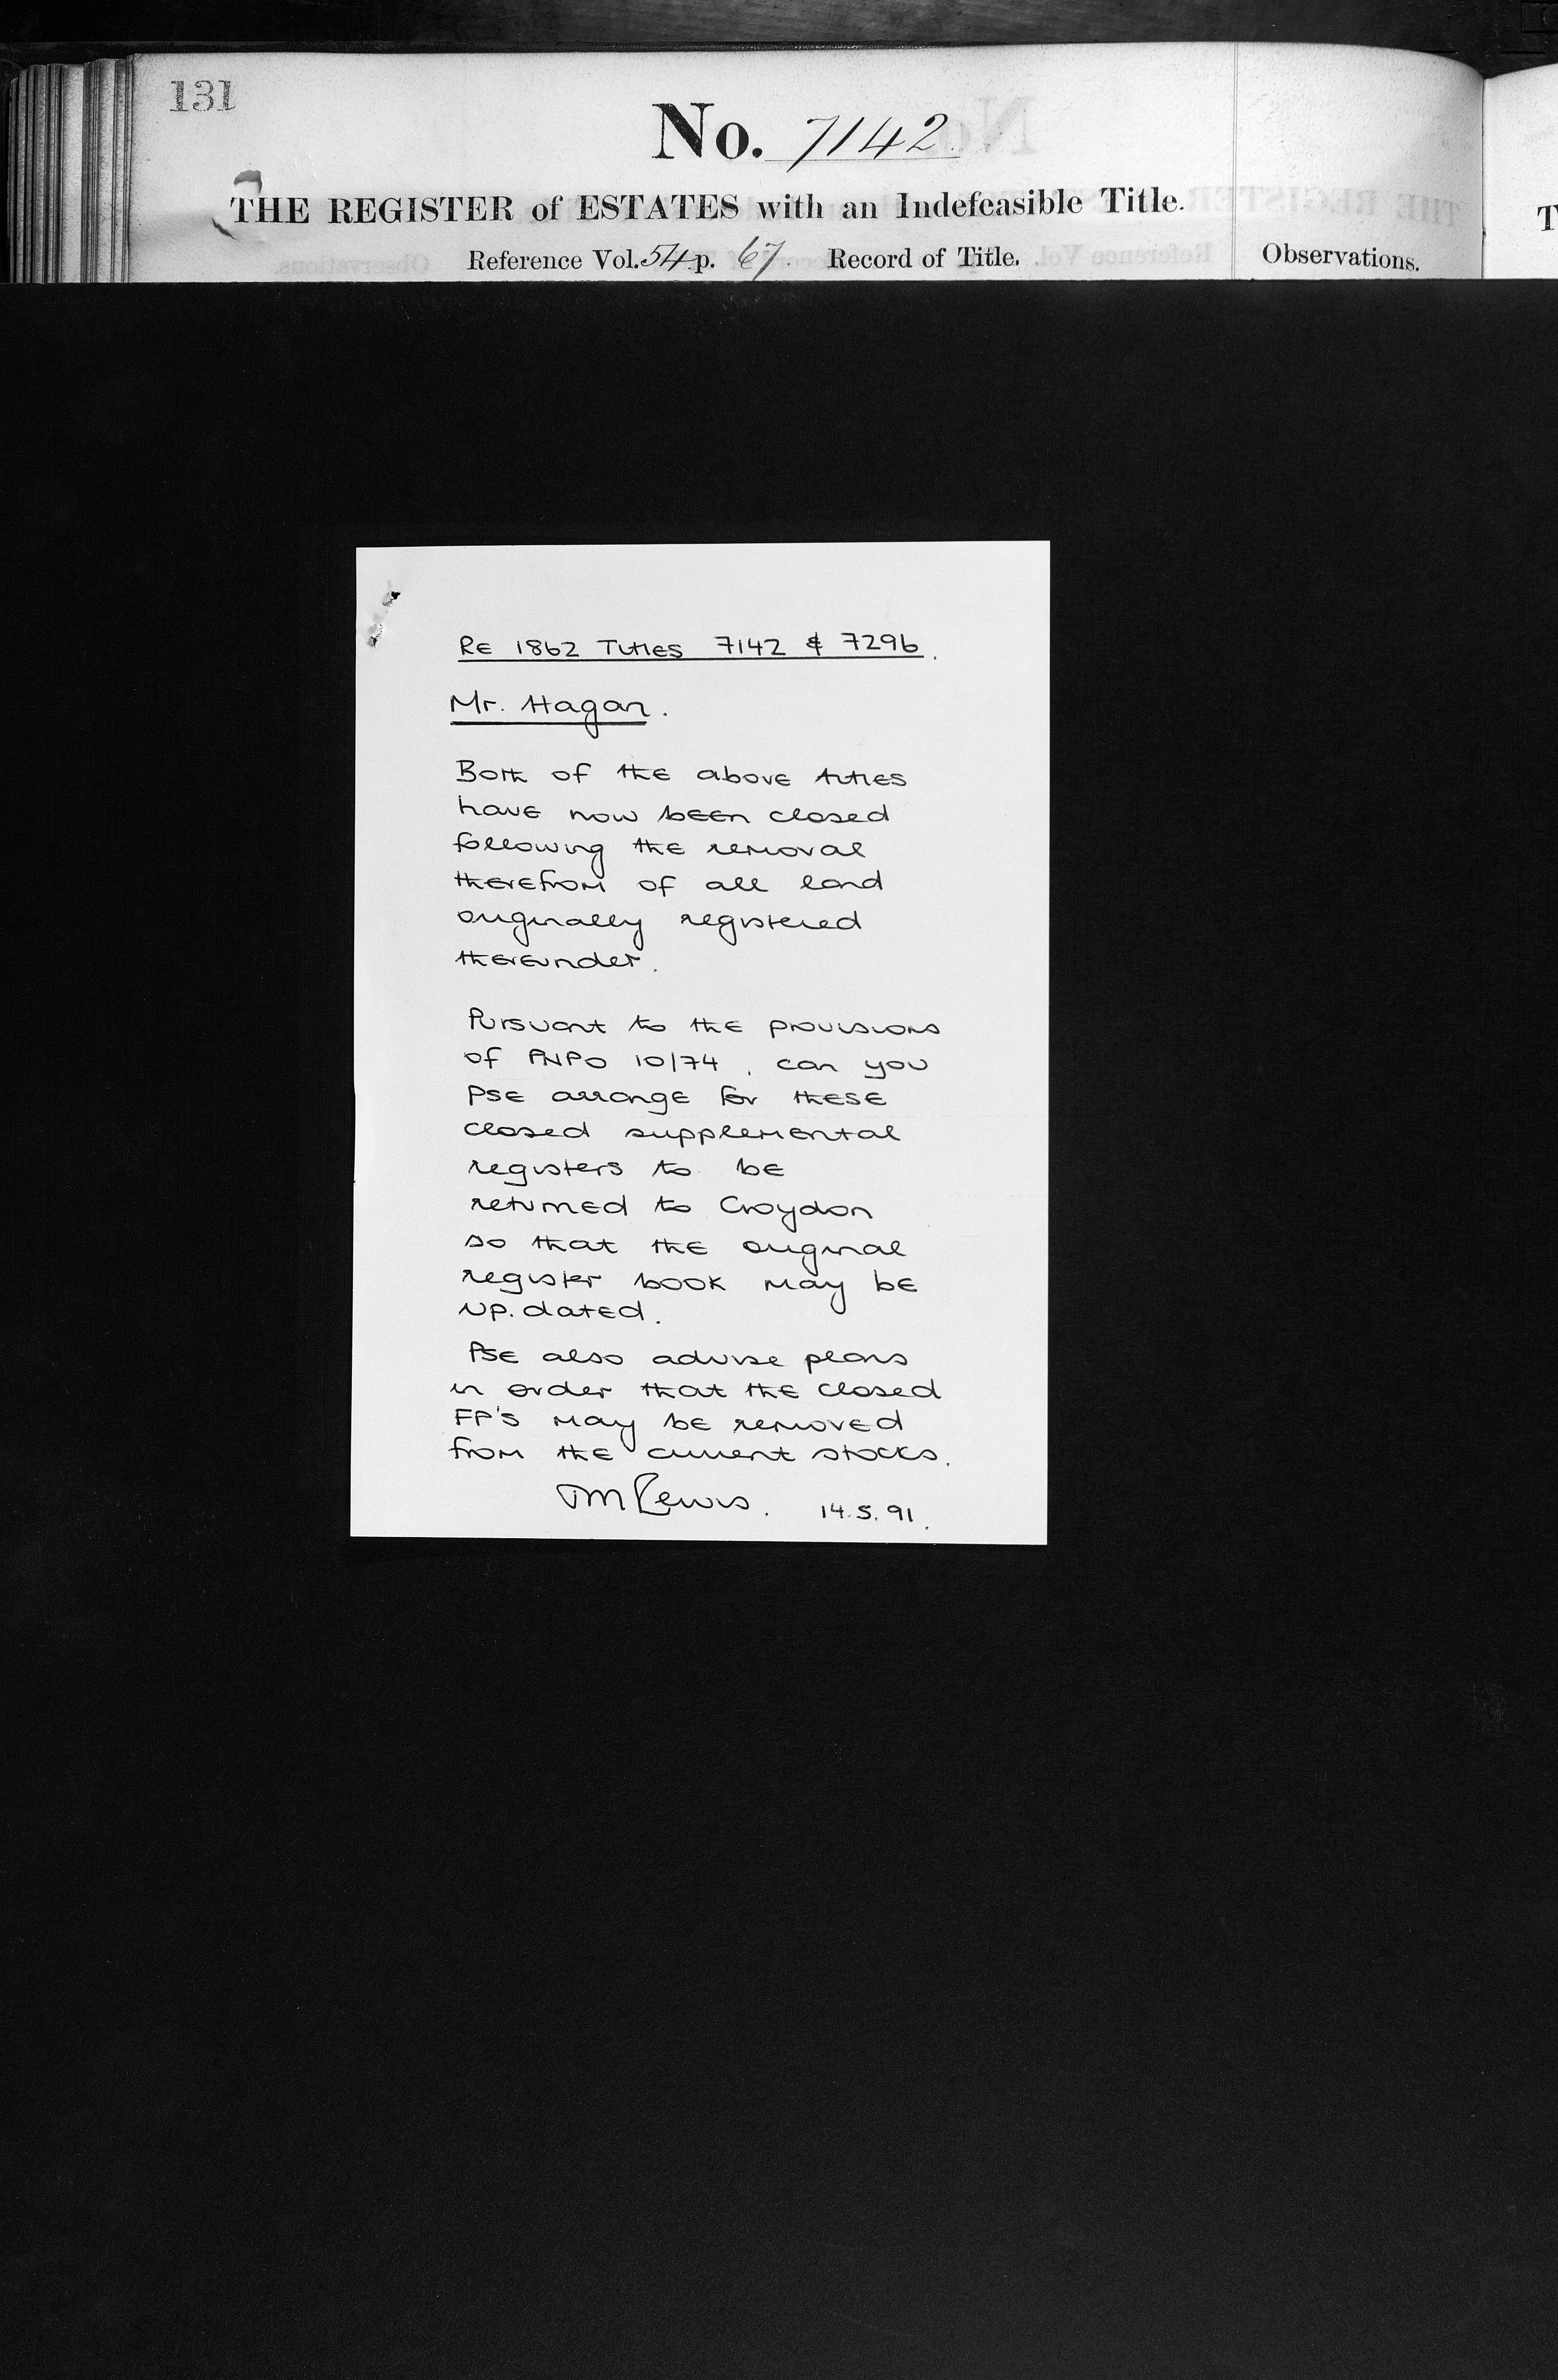 131
No. 7142
THE REGISTER of ESTATES with an Indefeasible Title.
Reference Vol. 54 p. 67. Record of Title.
Observations.
T
RE 1862 Titles 7142 & 7296.
Mr. Hagan.
Both of the above titles
have now been closed
following the removal
therefrom of all land
originally registered
thereunder.
Pursuant to the provisions
of PNPO 10/74, can you
Pse arrange for these
closed supplemental
registers to be
returned to Croydon
so that the original
register book may be
up.dated.
Pse also advise plans
in order that the closed
FP's may be removed
from the current stocks.
Lewis. 14.5.91.